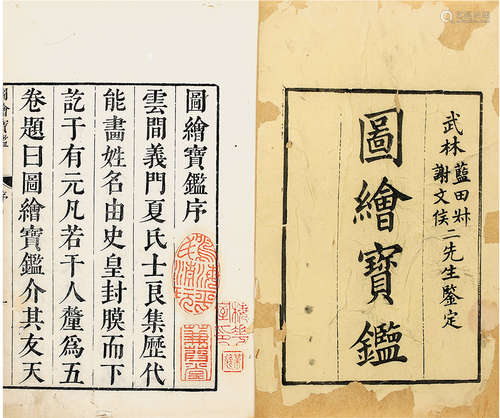 武林藍田叔
謝文侯二先生鑒定
圖繪寶鑑
圖繪寶鑑序
雲間義門夏氏士良集歷代
能畫姓名由史皇封膜而下
訖于有元凡若干人釐為五
卷題曰圖繪寶鑑介其友天
圖繪寶鑑
序